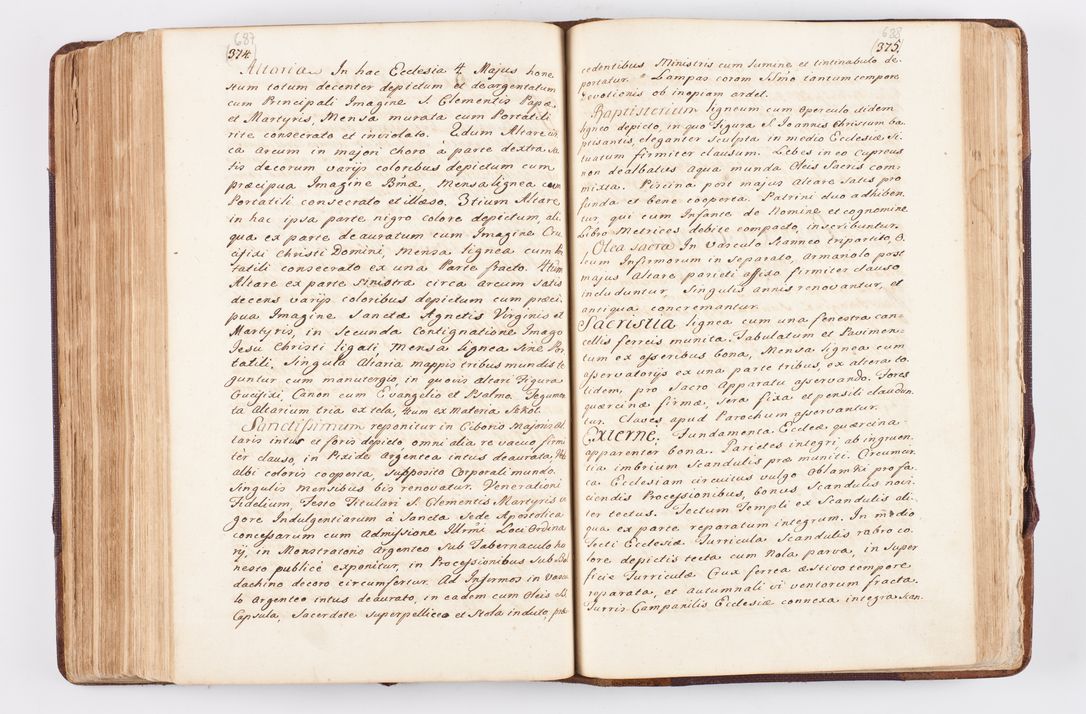 687
374.
Altaria. In hac Ecclesia 4. Majus hone
stum totum decenter depictum et deargentatum
cum Principali Imagine S. Clementis Papæ,
et Martyris, Mensa murata cum Portatili
rite consecrato et inviolato. 2dum Altare cir
ca arcum in majori Choro à parte dextra sa
tis decorum varijs coloribus depictum cum
præcipua Imagine Bmæ, Mensa lignea cum
Portatili consecrato et illæso. 3tium Altare
in hac ipsa parte nigro colore depictum, ali
qua ex parte deauratum cum Imagine Cru
cifixi Christi Domini, Mensa lignea cum Por
tatili consecrato ex una Parte fracto. 4tum
Altare ex parte sinistra circa arcum satis
decens varijs coloribus depictum cum præci
pua Imagine Sanctæ Agnetis Virginis et
Martyris, in Secunda Contignatione Imago
Jesu Christi ligati Mensa lignea sine Por
tatili. Singula Altaria mappis tribus mundis te
guntur cum manutergio, in quovis altari Figura
Crucifixi, Canon cum Evangelio et Psalmo. Tegumen
ta Altarium tria ex tela, 4tum ex Materia
Sanctissimum reponitur in Ciborio Majoris Al
taris intus et foris depicto omni alia re vacuo firmi
ter clauso, in Pixide argentea intus deaurata,
albi coloris cooperta, supposito Corporali mundo.
Singulis mensibus bis renovatur. Venerationi
Fidelium, Festo Titulari S. Clementis Martyris vi
gore Indulgentiarum à Sancta Sede Apostolica
concessarum cum Admissione Illrmi Loci Ordina
rij, in Monstratorio Argenteo sub Tabernaculo ho
nesto publicè exponitur, in Processionibus sub Bal
dachino decoro circumfertur. Ad Infirmos in Vascu
lo argenteo intus deaurato, in eadem cum Oleis
Capsula, Sacerdote superpelliceo et Stola induto, præ
688
375.
cedentibus Ministris cum lumine et tintinabulo de-
portatur. Lampas coram Ssmo tantum tempore
devotionis ob inopiam ardet.
Baptisterium ligneum cum operculo itidem
ligneo depicto, in quo Figura S. Joannis Christum ba-
ptisantis, eleganter sculpta in medio Ecclesiæ si-
tuatum firmiter clausum. Lebes in eo Cupreus
non dealbatus aqua munda Oleis Sacris com-
mixta. Piscina post majus Altare satis pro
funda et bene cooperta. Patrini duo adhiben-
tur, qui cum Infante de Nomine et cognomine
Libro Metrices debite compacto, inscribuntur.
Olea sacra In Vasculo stanneo tripartito, O-
leum Infirmorum in separato, armariolo post
majus Altare parieti affixo firmiter clauso
includuntur, Singulis annis renovantur, et
antiqua concremantur.
Sacristia lignea cum una fenestra can-
cellis ferreis munita. Tabulatum et Pavimen-
tum ex asseribus bona, Mensa lignea cum
asservatorijs ex una parte tribus, ex altera to-
tidem, pro Sacro Apparatu asservando. Fores
quærcinæ firmæ, Sera fixa et pensili claudun-
tur. Claves apud Parochum asservantur.
Externe. Fundamenta Eccleæ quærcina
apparenter bona. Parietes integri ab inguen-
tia imbrium Scandulis præ muniti. Circumcir-
ca Ecclesiam circuitus vulgo Oblamki pro fa-
ciendis Processionibus, bonus Scandulis novi-
ter tectus. Tectum Templi ex Scandulis ali-
qua ex parte reparatum integrum. In medio
Tecti Ecclesiæ Turricula Scandulis rubro co-
lore depictis tecta cum Nola parva, in Super
ficie Turriculæ Crux ferrea æstivo tempore
reparata, et autumnali vi ventorum fracta.
Turris Campanilis Ecclesiæ connexa integra Scan-